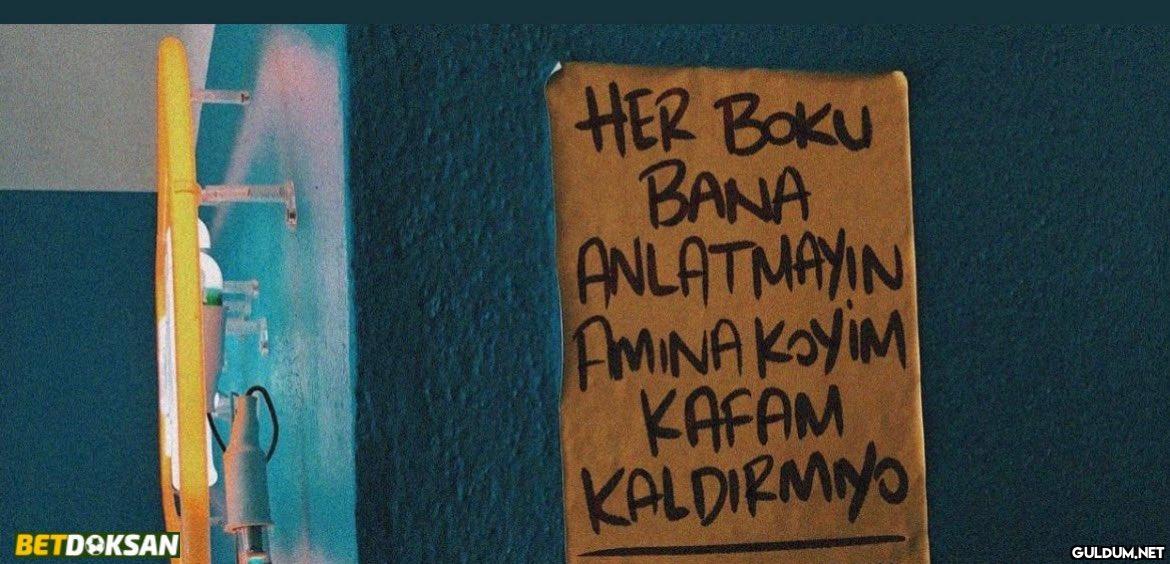 HER BOKU
BANA
ANLATMAYIN
AMINA KOYİM
KAFAM
KALDIRMIYO
BETDOKSAN
GULDUM.NET